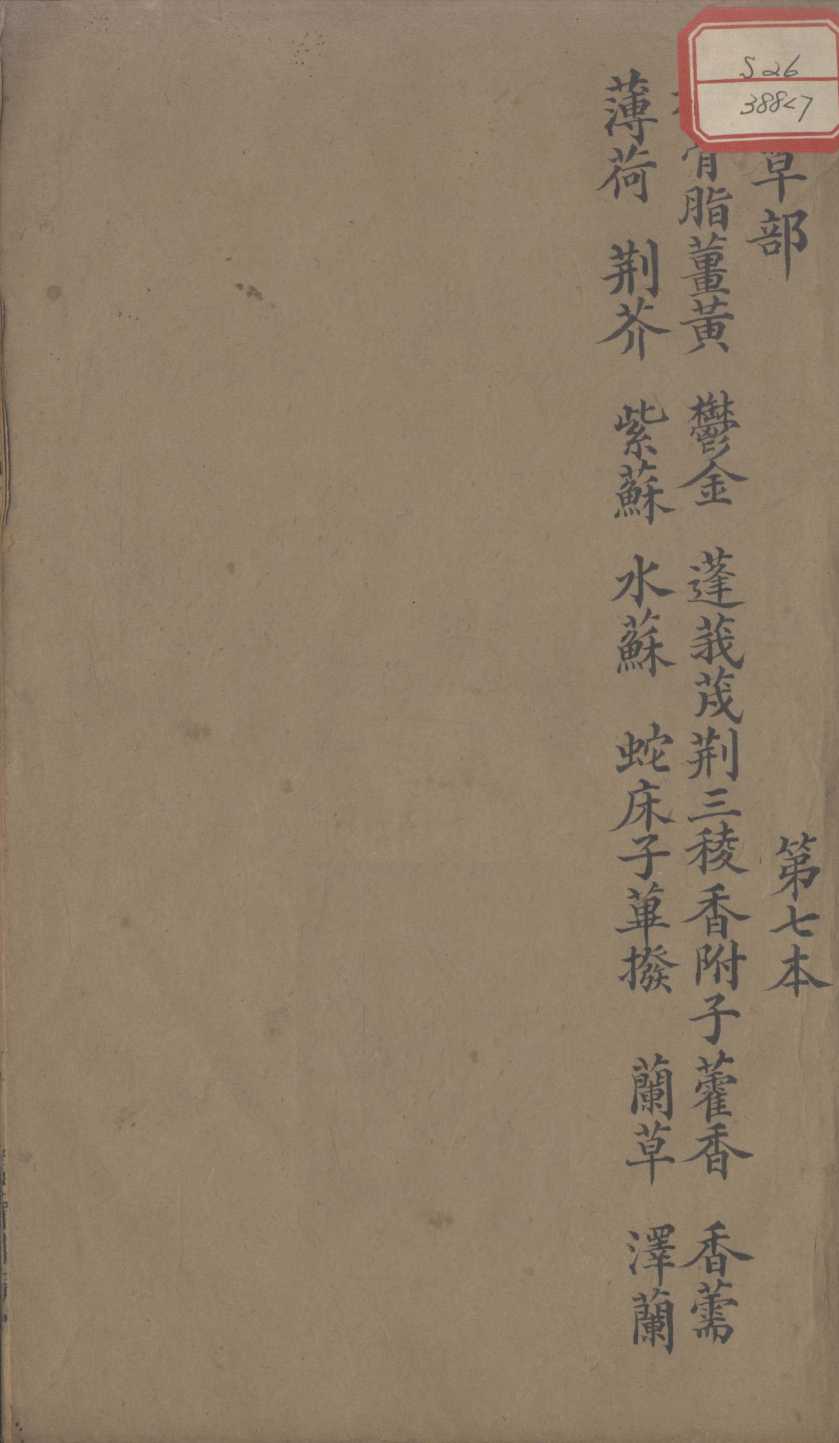 S26
388<7
草部 第七本
骨脂 薑黃 鬱金 蓬莪茂 荆三稜 香附子 藿香 香薷
薄荷 荆芥 紫蘇 水蘇 蛇床子 蓽撥 蘭草 澤蘭